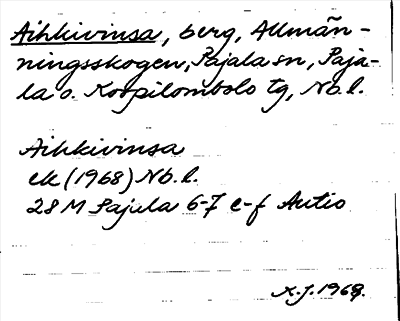 Aihkivinsa, berg, Allmän-
ningsskogen, Pajala sn, Paja-
la o. Korpilombolo tg, Nb.l.
Aihkivinsa
ek (1968) Nb.l.
28 M Pajala 6-7 e-f Autio
K.J. 1969.